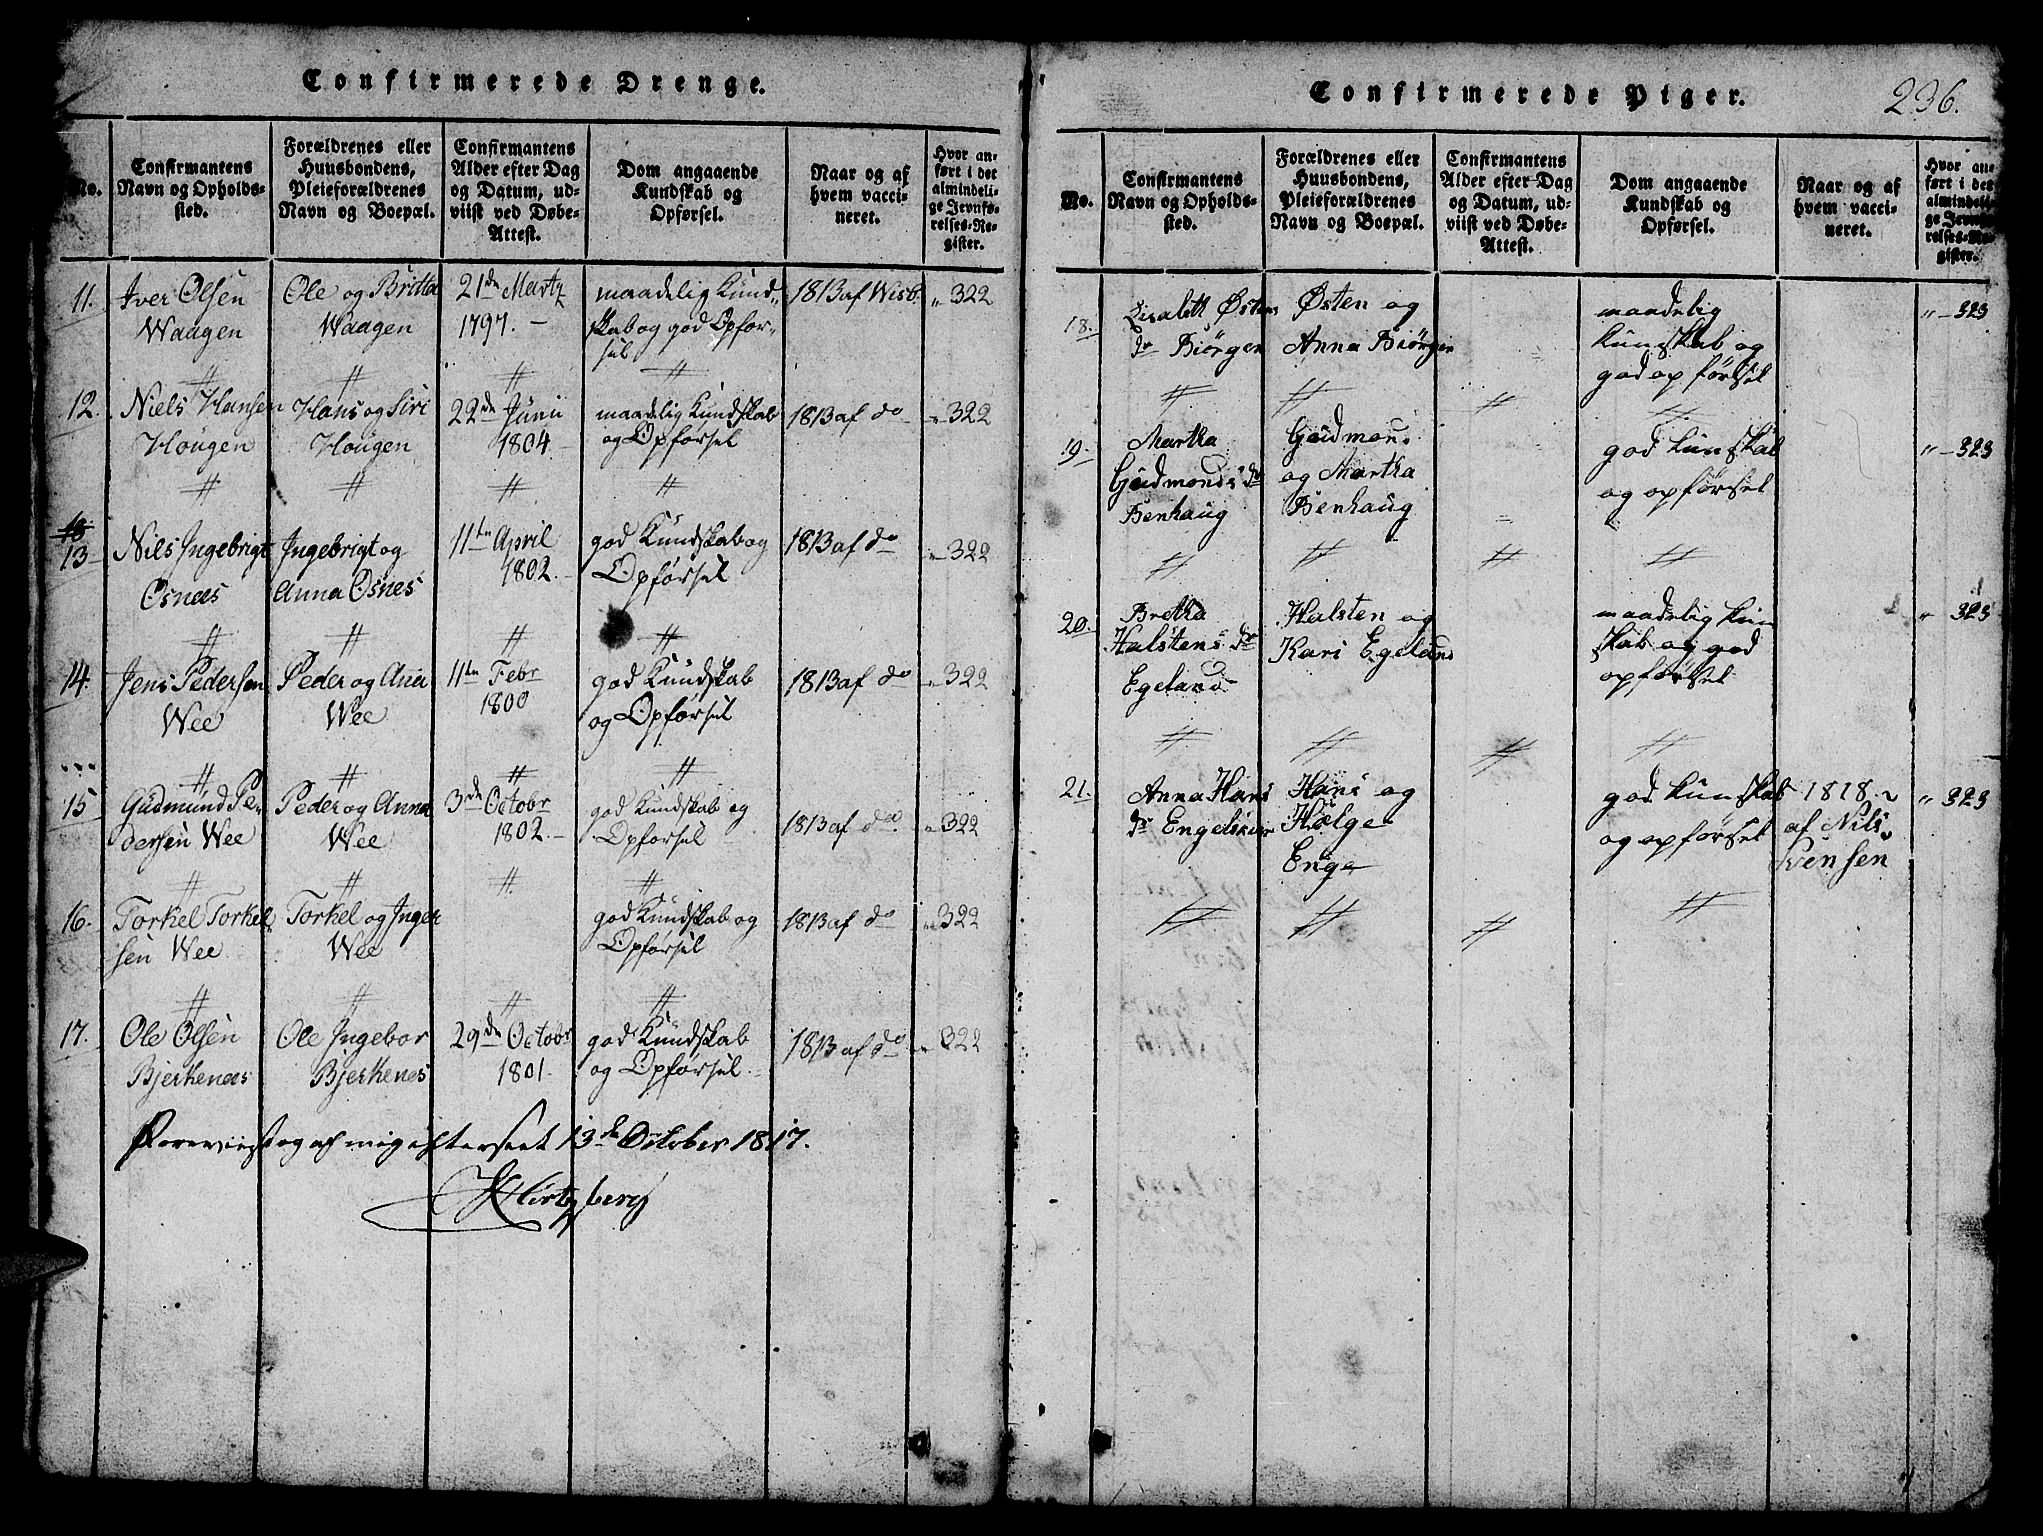 Confirmerede Drenge.
No.
Confirmantens
Navn og Opholds-
sted.
Forældrenes eller
Huusbondens,
Pleieforældrenes
Navn og Boepæl.
Confirmantens
Alder efter Dag
og Datum, ud-
viist ved Døbe-
Attest.
Dom angaaende
Kundskab og
Opførsel.
Naar og af
hvem vacci-
neret.
Hvor an-
ført i det
almindeli-
ge Jevnfø-
relses-Re-
gister.
11.
Iver Olsen
Waagen
Ole og Britta
Waagen
21de Martz
1797. –
maadelig Kund„
skab og god Opfør-
sel
1813 af Wisb.
„ 322
12.
Niels Hansen
Hougen
Hans og Siri
Hougen
22de Junii
1804 –
maadelig Kundskab
og Opførsel
1813 af do
„ 322
13
Nils Ingebrigt
Osnæs
Ingebrigt og
Anna Osnes
11te April
1802. –
god Kundskab og
Opførsel
1813 af do
„ 322
14.
Jens Pedersen
Wee
Peder og Ana
Wee
11te Febr
1800
god Kundskab
og Opførsel
1813 af do
„ 322
15
Gudmund Pe-
dersen Wee
Peder og Anna
Wee
3de Octobr
1802. –
god Kundskab og
Opførsel
1813 af do
„ 322
16.
Torkel Torkel
sen Wee
Torkel og Inger
Wee
god Kundskab og
Opførsel
1813 af do
„ 322
17.
Ole Olsen
Bjerkenæs
Ole Ingebor
Bjerkenes
29de Octobr
1801.
god Kundskab
og Opførsel
1813 af do
„ 322
og af mig efterseet 13de October 1817.
Hertzberg
Confirmerede Piger.
236.
No.
Confirmantens
Navn og Opholds-
sted.
Forældrenes eller
Huusbondens,
Pleieforældrenes
Navn og Boepæl.
Confirmantens
Alder efter Dag
og Datum, ud-
viist ved Døbe-
Attest.
Dom angaaende
Kundskab og
Opførsel.
Naar og af
hvem vacci-
neret.
Hvor an-
ført i det
almindeli-
ge Jevnfø-
relses-Re-
gister.
18.
Lisabeth Østens
dr Biørgen
Østen og
Anna Biørgen
maadelig
kunskab og
god opførsel
„ – 323
19.
Martha
Gudmonds dr
Benhaug
Gudmon
og Martha
Benhaug
god kunskab
og opførsel
„ – 323
20.
Bretha
Halstens dr
Egeland
Halsten og
Kari Egeland
maadelig kun
skab og god
opførsel
„ 323
21.
Anna Hans
dr Engelskier
Hans og
Hælge
Enge
god kunskab
og opførsel
1818.
af Nils
Svensen
„ 323